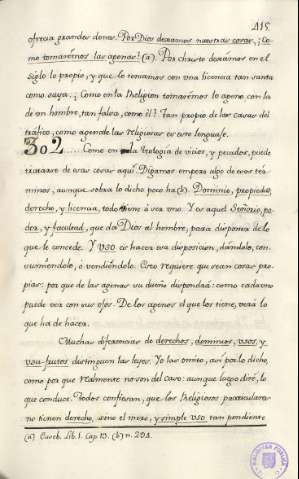 415
ofrecia grandes dones. Por Dios dexamos nuestras cosas. ¿Co-
mo tomarémos las agenas? (a). Por cierto dexamos en el
siglo lo propio, y que lo tomamos con una licencia tan santa
como suya. ¿Como en la Religion tomarémos lo ageno con la
de un hombre, tan falso, como él? Tan propio de las casas del
tráfico, como ageno de las religiosas es este lenguaje.
302 Como en la Teología de vicios, y pecados, puede
tratarse de esas cosas aqui. Digamos empero algo de esos tér-
minos, aunque sobra lo dicho poco ha (b). Dominio, propiedad,
derecho, y licencia, todo suena à vez uno. Y es aquel Señorío, po-
der, y facultad, que dá Dios al hombre, para disponer de lo
que le concede. Y uso es hacer esa disposicion, dándolo, con-
sumiéndolo, ó vendiéndolo. Esto requiere que sean cosas pro-
pias: por que de las agenas su dueño dispondrá: como cada uno
puede ver con sus ojos. De los agenos el que los tiene, verá lo
que ha de hacer.
Muchas diferencias de derechos, dominios, usos, y
usu-frutos distinguen las leyes. Yo las omito, asi por lo dicho,
como por que realmente no son del caso: aunque luego diré, lo
que conduce. Todos confiesan, que los Religiosos particulares
no tienen derecho, sino el mero, y simple uso tan pendiente
(a) Lib. 1. Cap. 13. (b) n. 291.